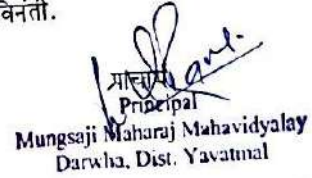 विनंती.
प्राचार्य
Principal
Mungsaji Maharaj Mahavidyalay
Darwha, Dist. Yavatmal